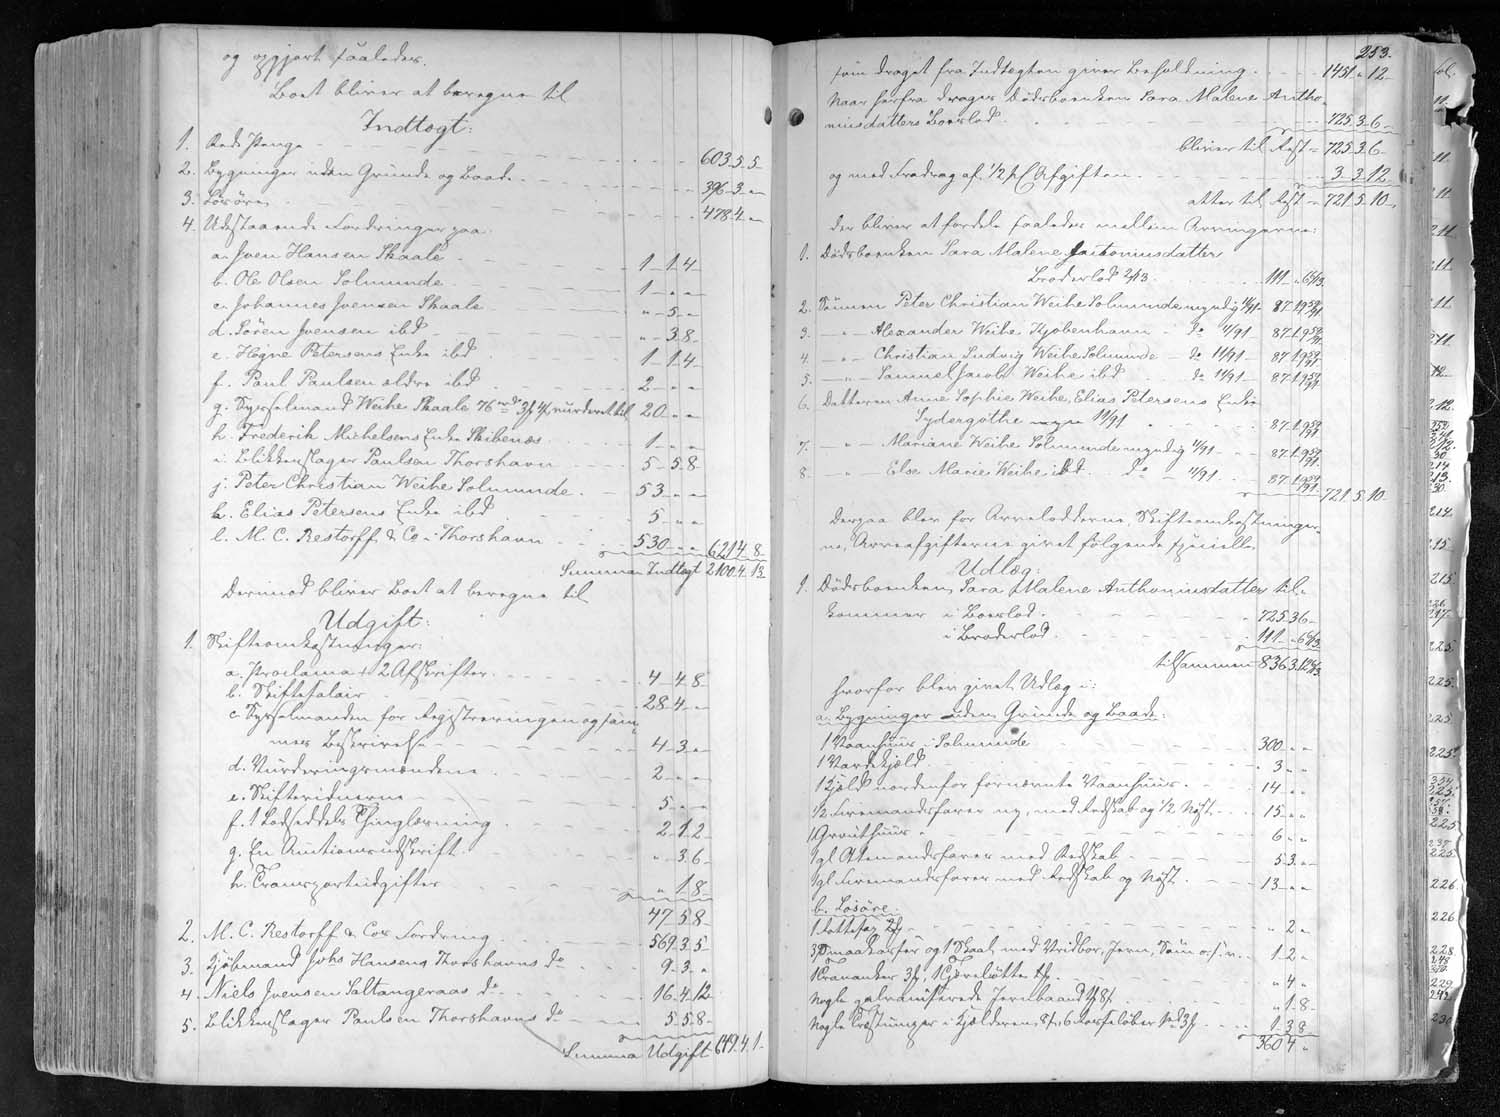 og opgjort saaledes.
Boet bliver at beregne til
Indtægt:
1. Rede Penge 603-5-5
2. Bygninger uden Grunde og Baade 396-3-"
3. Løsøre 478-4-"
4. Udestaaende Fordringer paa:
a. Joen Hansen Skaale 1-1-4
b. Ole Olsen Solmunde 1-"-"
c. Johannes Joensen Skaale "-5-"
d. Sören Joensen ibd "-3-8
e. Høgne Petersens Enke ibd 1-1-4
f. Paul Paulsen ældre ibd 2-"-"
g. Sysselmand Weihe Skaale 76 rd 3 # 4 s vurderet til 20-"-"
h. Frederik Michelsens Enke Skibenæs 1-"-"
i. Blikkenslager Paulsen Thorshavn 5-5-8
j. Peter Christian Weihe Solmunde 53-"-"
k. Elias Petersens Enke ibd 5-"-"
l. M. C. Restorff & Co - Thorshavn 530-"-" 621.4.8
Summa Indtægt 2100.4.13
Derimod bliver Boet at beregne til
Udgift:
1. Skifteomkostninger:
a. Proclama + 2 Afskrifter 4-4-8
b. Skiftesalair 28-4-"
c. Sysselmanden for Registreringen og sam-
mes Beskrivelse 4-3-"
d. Vurderingsmændene 2-"-"
e. Skiftevidnerne 5-"-"
f. 1 Lodseddels Thinglæsning 2-1-2
g. En Auctionsudskrift "-3-6
h. Transportudgifter "-1-8
47-5-8
2. M. C. Restorff & Co's Fordring 569-3-5
3. Kjøbmand Johs Hansens Thorshavns do 9-3-"
4. Niels Joensen Saltangeraas do 16-4-12
5. Blikkenslager Paulsen Thorshavns do 5-5-8
Summa Udgift 649.4.1
253.
som draget fra Indtægten giver Beholdning 1451-"-12
Naar herfra drages Dødsboenken Sara Malene Antho-
niusdatters Boeslod 725-3-6
bliver til Rest = 725-3-6
og med Fradrag af 1/2 pC Afgiften 3-3-12
atter til Rest = 721-5-10
der bliver at fordele saaledes mellem Arvingerne:
1. Dødsboenken Sara Malene Anthoniusdatter
Broderlod 2/13 111-"-6 6/13
2. Sönnen Peter Christian Weihe Solmunde myndig 11/91 87-1-9
3. -"- Alexander Weihe Kjøbenhavn - do 11/91 87-1-9
4. -"- Christian Ludvig Weihe Solmunde - do 11/91 87-1-9
5. -"- Samuel Jacob Weihe ibd do 11/91 87-1-9
6. Datteren Anne Sophie Weihe, Elias Petersens Enke
Sydergøthe myn 11/91 87-1-9
7. -"- Mariane Weihe Solmunde myndig 11/91 87-1-9
8. -"- Else Marie Weihe ibd do 11/91 87-1-9
721-5-10
Derpaa blev for Arvelodderne, Skifteomkostninger-
ne, Arveafgifterne givet følgende specielle
Udlæg:
1. Dødsboenken, Sara Malene Anthoniusdatter til-
kommer i Boeslod 725-3-6
i Broderlod 111-"-6 6/13
tilsammen 836.3.12 6/13
hvorfor blev givet Udlæg i:
a. Bygninger uden Grunde og Baade:
1 Vaanhuus i Solmunde 300-"-"
1 Vardekjæld 3-"-"
1 Kjæld nordenfor fornævnte Vaanhuus 14-"-"
1/2 Firemandsfarer ny, med Redskab og 1/2 Nøst 15-"-"
1 Grouthuus 6-"-"
1 gl Ottemandsfarer med Redskab 5-3-"
1 gl Firemandsfarer med Redskab og Nøst 13-"-"
b. Løsøre.
"-2-"
3 Smaakarfer og 1 Skaal med Vridbor, Jern, Søm o.s.v. 1-2-"
"-4-"
Nogle galvaniserede Jernbaand "-1-8
Nogle i Kjælderen 1-3-8
360-4-"